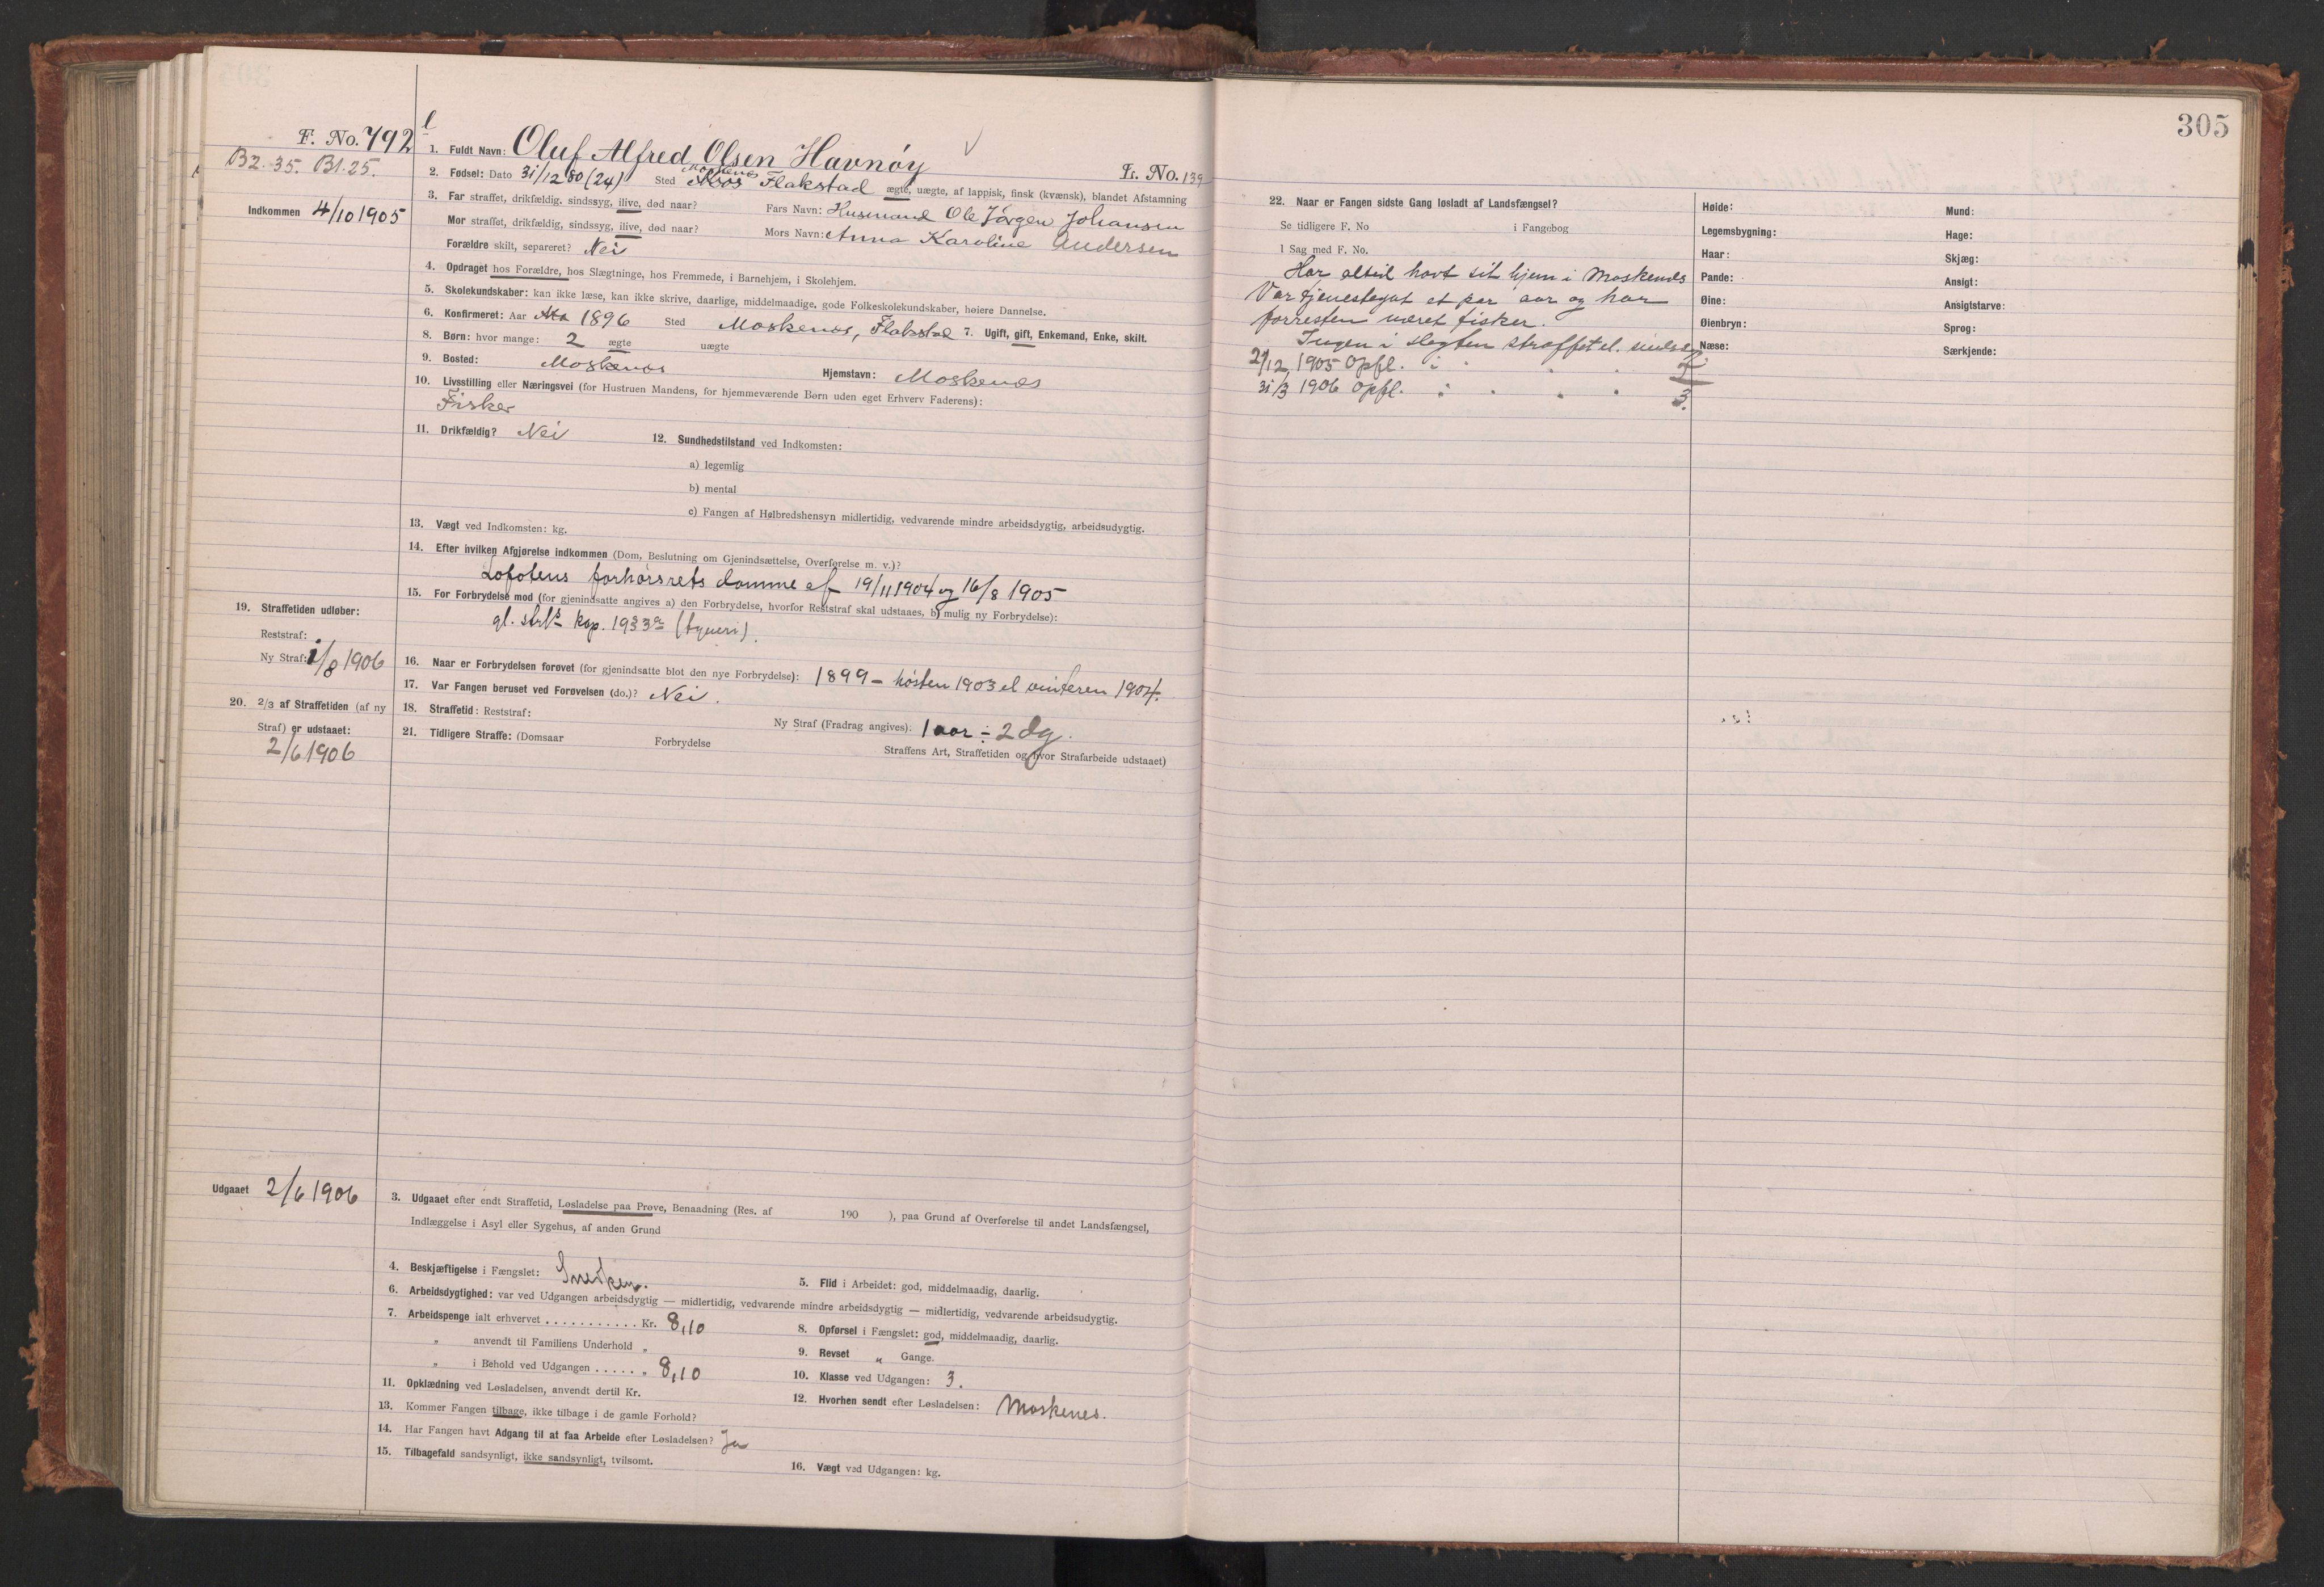 F. No. 792
l
B2. 35. B1. 25.
Indkommen 4/10 1905
1. Fuldt Navn: Oluf Alfred Olsen Havnøy
Fr. No. 139
2. Fødsel: Dato 31/12 80 (24) Sted Moskenes Flakstad ægte, uægte, af lappisk, finsk (kvænsk), blandet Afstamning
3. Far straffet, drikfældig, sindssyg, ilive, død naar? Fars Navn: Husmand Ole Jörgen Johansen
Mor straffet, drikfældig, sindssyg, ilive, død naar? Mors Navn: Anna Karoline Andersen
Forældre skilt, separeret? Nei
4. Opdraget hos Forældre, hos Slægtninge, hos Fremmede, i Barnehjem, i Skolehjem.
5. Skolekundskaber: kan ikke læse, kan ikke skrive, daarlige, middelmaadige, gode Folkeskolekundskaber, høiere Dannelse.
6. Konfirmeret: Aar 1896 Sted Moskenes, Flakstad 7. Ugift, gift, Enkemand, Enke, skilt.
8. Børn: hvor mange: 2 ægte uægte
9. Bosted: Moskenes Hjemstavn: Moskenes
10. Livsstilling eller Næringsvei (for Hustruen Mandens, for hjemmeværende Børn uden eget Erhverv Faderens):
Fisker
11. Drikfældig? Nei 12. Sundhedstilstand ved Indkomsten:
a) legemlig
b) mental
c) Fangen af Helbredshensyn midlertidig, vedvarende mindre arbeidsdygtig, arbeidsudygtig.
13. Vægt ved Indkomsten: kg.
14. Efter hvilken Afgjørelse indkommen (Dom, Beslutning om Gjenindsættelse, Overførelse m. v.)?
Lofotens forhörsrets domme af 19/11 1904 og 16/8 1905
15. For Forbrydelse mod (for gjenindsatte angives a) den Forbrydelse, hvorfor Reststraf skal udstaaes, b) mulig ny Forbrydelse):
gl. strl's kap. 19 § 3 a (tyveri).
19. Straffetiden udløber:
Reststraf:
Ny Straf: 1/8 1906
16. Naar er Forbrydelsen forøvet (for gjenindsatte blot den nye Forbrydelse): 1899 - hösten 1903 el vinteren 1904.
17. Var Fangen beruset ved Forøvelsen (do.)? Nei.
20. 2/3 af Straffetiden (af ny
Straf) er udstaaet:
2/6 1906
18. Straffetid: Reststraf: Ny Straf (Fradrag angives): 1 aar ÷ 2 dg.
21. Tidligere Straffe: (Domsaar Forbrydelse Straffens Art, Straffetiden og hvor Strafarbeide udstaaet)
Udgaaet 2/6 1906
3. Udgaaet efter endt Straffetid, Løsladelse paa Prøve, Benaadning (Res. af 190 ), paa Grund af Overførelse til andet Landsfængsel,
Indlæggelse i Asyl eller Sygehus, af anden Grund
4. Beskjæftigelse i Fængslet: Snedker. 5. Flid i Arbeidet: god, middelmaadig, daarlig.
6. Arbeidsdygtighed: var ved Udgangen arbeidsdygtig — midlertidig, vedvarende mindre arbeidsdygtig — midlertidig, vedvarende arbeidsudygtig.
7. Arbeidspenge ialt erhvervet . . . . . . . . . . . Kr. 8,10 8. Opførsel i Fængslet: god, middelmaadig, daarlig.
„ anvendt til Familiens Underhold „ 9. Revset „ Gange.
„ i Behold ved Udgangen . . . . . „ 8,10 10. Klasse ved Udgangen: 3.
11. Opklædning ved Løsladelsen, anvendt dertil Kr. 12. Hvorhen sendt efter Løsladelsen: Moskenes.
13. Kommer Fangen tilbage, ikke tilbage i de gamle Forhold?
14. Har Fangen havt Adgang til at faa Arbeide efter Løsladelsen? Ja
15. Tilbagefald sandsynligt, ikke sandsynligt, tvilsomt. 16. Vægt ved Udgangen: kg.
305
22. Naar er Fangen sidste Gang løsladt af Landsfængsel?
Se tidligere F. No i Fangebog
I Sag med F. No.
Har altid havt sit hjem i Moskenes
Var tjenestegut et par aar og har
forresten været fisker.
Ingen i slegten straffet el. sindss.
29/12 1905 Opfl. i " " " 2
31/3 1906 Opfl. " " " " 3.
Høide: Mund:
Legemsbygning: Hage:
Haar: Skjæg:
Pande: Ansigt:
Øine: Ansigtsfarve:
Øienbryn: Sprog:
Næse: Særkjende: